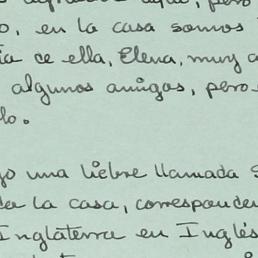 aquí, pero
o, en la casa somos
ía ce ella, Elena, muy a
algunos amigos, pero
lo.
go una liebre llamada S
da la casa, corresponden
Inglaterra en Inglés